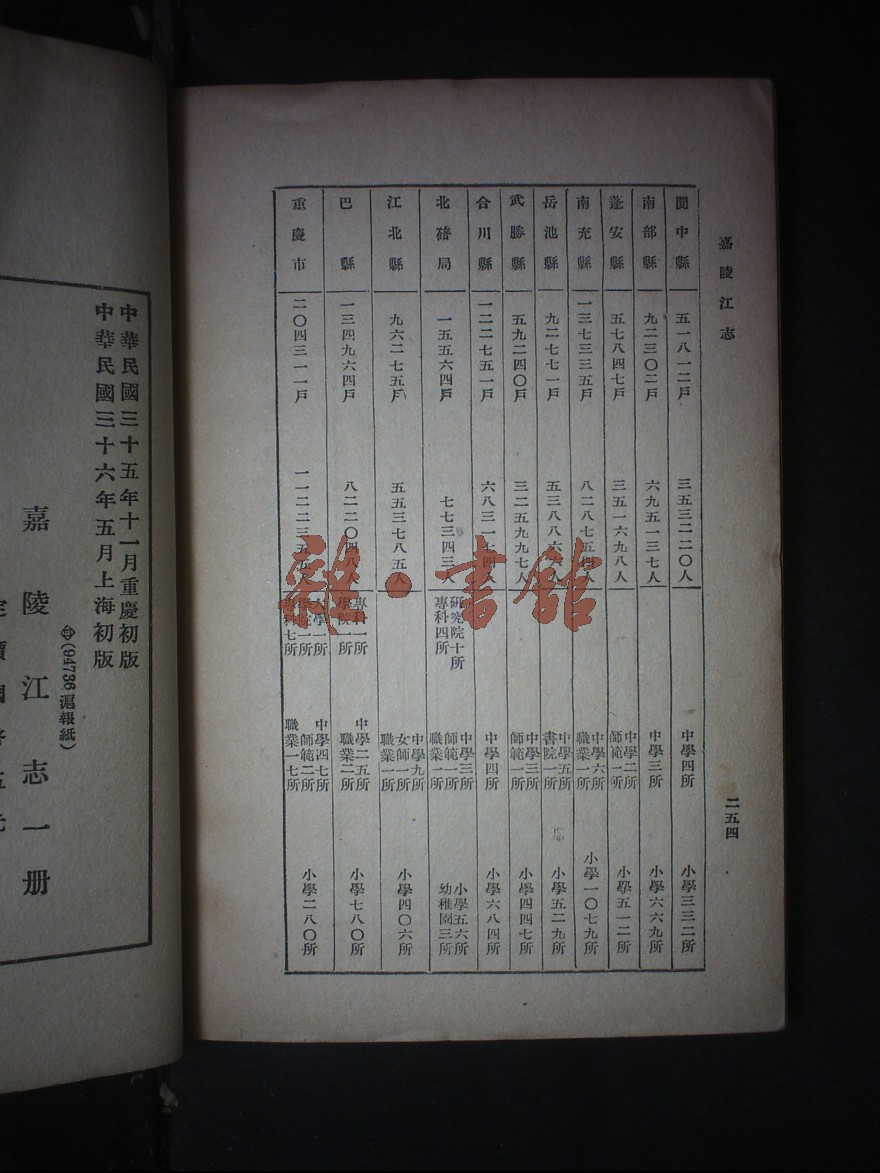 嘉陵江志
二五四
閬中縣 五一八一二戶 三五三二二〇人 中學四所 小學三三二所
南部縣 九二三〇二戶 六九五一三七人 中學三所 小學六六九所
蓬安縣 五七八四七戶 三五一六九八人 中學二所 師範一所 小學五一二所
南充縣 一三七三三五戶 八二八七五四人 中學六所 職業一所 小學一〇七九所
岳池縣 九二七七一戶 五三八八六六人 中學五所 書院一所 小學五二九所
武勝縣 五九二四〇戶 三二五九九七人 中學三所 師範一所 小學四四七所
合川縣 一二二七五一戶 六八三一七四人 中學四所 小學六八四所
北碚局 一五五六四戶 七七三四三人 研究院十所 專科四所 中學三所 師範一所 職業一所 小學五六所 幼稚園三所
江北縣 九六二七五戶 五五三七八五人 中學九所 女師一所 職業一所 小學四〇六所
巴縣 一三四九六四戶 八二二〇四八人 專科一所 學院一所 中學二五所 職業二所 小學七八〇所
重慶市 二〇四三一一戶 一一二二三五五人 大學一所 學院一所 專科七所 中學四七所 師範二所 職業一七所 小學二八〇所
中華民國三十五年十一月重慶初版
中華民國三十六年五月上海初版
(94736滬報紙)
嘉陵江志一册
雜·書館